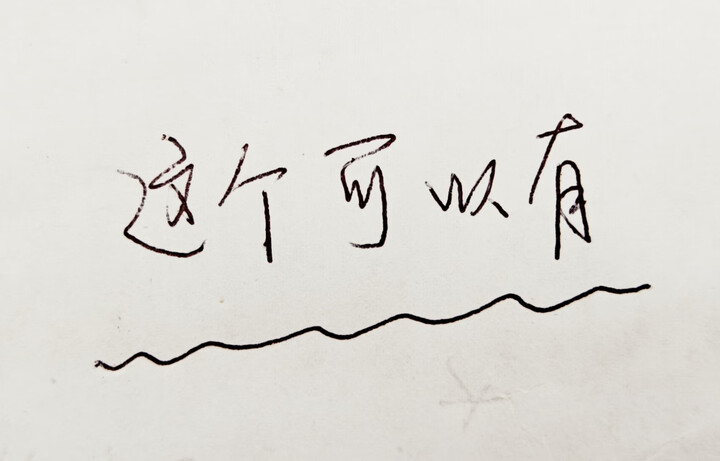 这个可以有